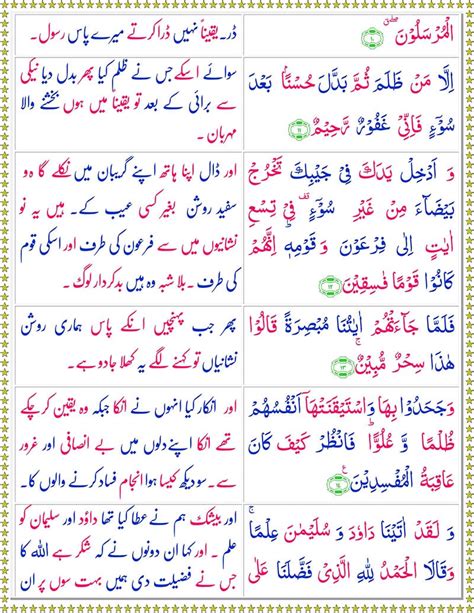 الْمُرْسَلُوْنَ ۖۗ ﴿۱۰﴾
ڈر۔ یقیناً نہیں ڈرا کرتے میرے پاس رسول۔
اِلَّا مَنْ ظَلَمَ ثُمَّ بَدَّلَ حُسْنًۢا بَعْدَ
سُوْٓءٍ فَاِنِّيْ غَفُوْرٌ رَّحِيْمٌ ﴿۱۱﴾
سوائے اسکے جس نے ظلم کیا پھر بدل دیا نیکی
سے برائی کے بعد تو یقیناً میں ہوں بخشنے والا
مہربان۔
وَ اَدْخِلْ يَدَكَ فِيْ جَيْبِكَ تَخْرُجْ
بَيْضَآءَ مِنْ غَيْرِ سُوْٓءٍ ۫ فِيْ تِسْعِ
اٰيٰتٍ اِلٰى فِرْعَوْنَ وَ قَوْمِهٖ ؕ اِنَّهُمْ
كَانُوْا قَوْمًا فٰسِقِيْنَ ﴿۱۲﴾
اور ڈال اپنا ہاتھ اپنے گریبان میں نکلے گا وہ
سفید روشن بغیر کسی عیب کے۔ ہیں یہ نو
نشانیوں میں سے فرعون کی طرف اور اسکی قوم
کی طرف۔ بلا شبہ وہ ہیں بدکردار لوگ۔
فَلَمَّا جَآءَتْهُمْ اٰيٰتُنَا مُبْصِرَةً قَالُوْا
هٰذَا سِحْرٌ مُّبِيْنٌ ۚ ﴿۱۳﴾
پھر جب پہنچیں انکے پاس ہماری روشن
نشانیاں تو کہنے لگے یہ کھلا جادو ہے۔
وَ جَحَدُوْا بِهَا وَ اسْتَيْقَنَتْهَاۤ اَنْفُسُهُمْ
ظُلْمًا وَّ عُلُوًّا ؕ فَانْظُرْ كَيْفَ كَانَ
عَاقِبَةُ الْمُفْسِدِيْنَ ﴿۱۴﴾ ع
اور انکار کیا انہوں نے انکا جبکہ وہ یقین کر چکے
تھے انکا اپنے دلوں میں بے انصافی اور غرور
سے۔ سو دیکھ کیسا ہوا انجام فساد کرنے والوں کا۔
وَ لَقَدْ اٰتَيْنَا دَاوٗدَ وَ سُلَيْمٰنَ عِلْمًا ۚ
وَ قَالَا الْحَمْدُ لِلّٰهِ الَّذِيْ فَضَّلَنَا عَلٰى
اور بیشک ہم نے عطا کیا تھا داؤد اور سلیمان کو
علم۔ اور کہا ان دونوں نے کہ شکر ہے اللہ کا
جس نے فضیلت دی ہمیں بہت سوں پر ان